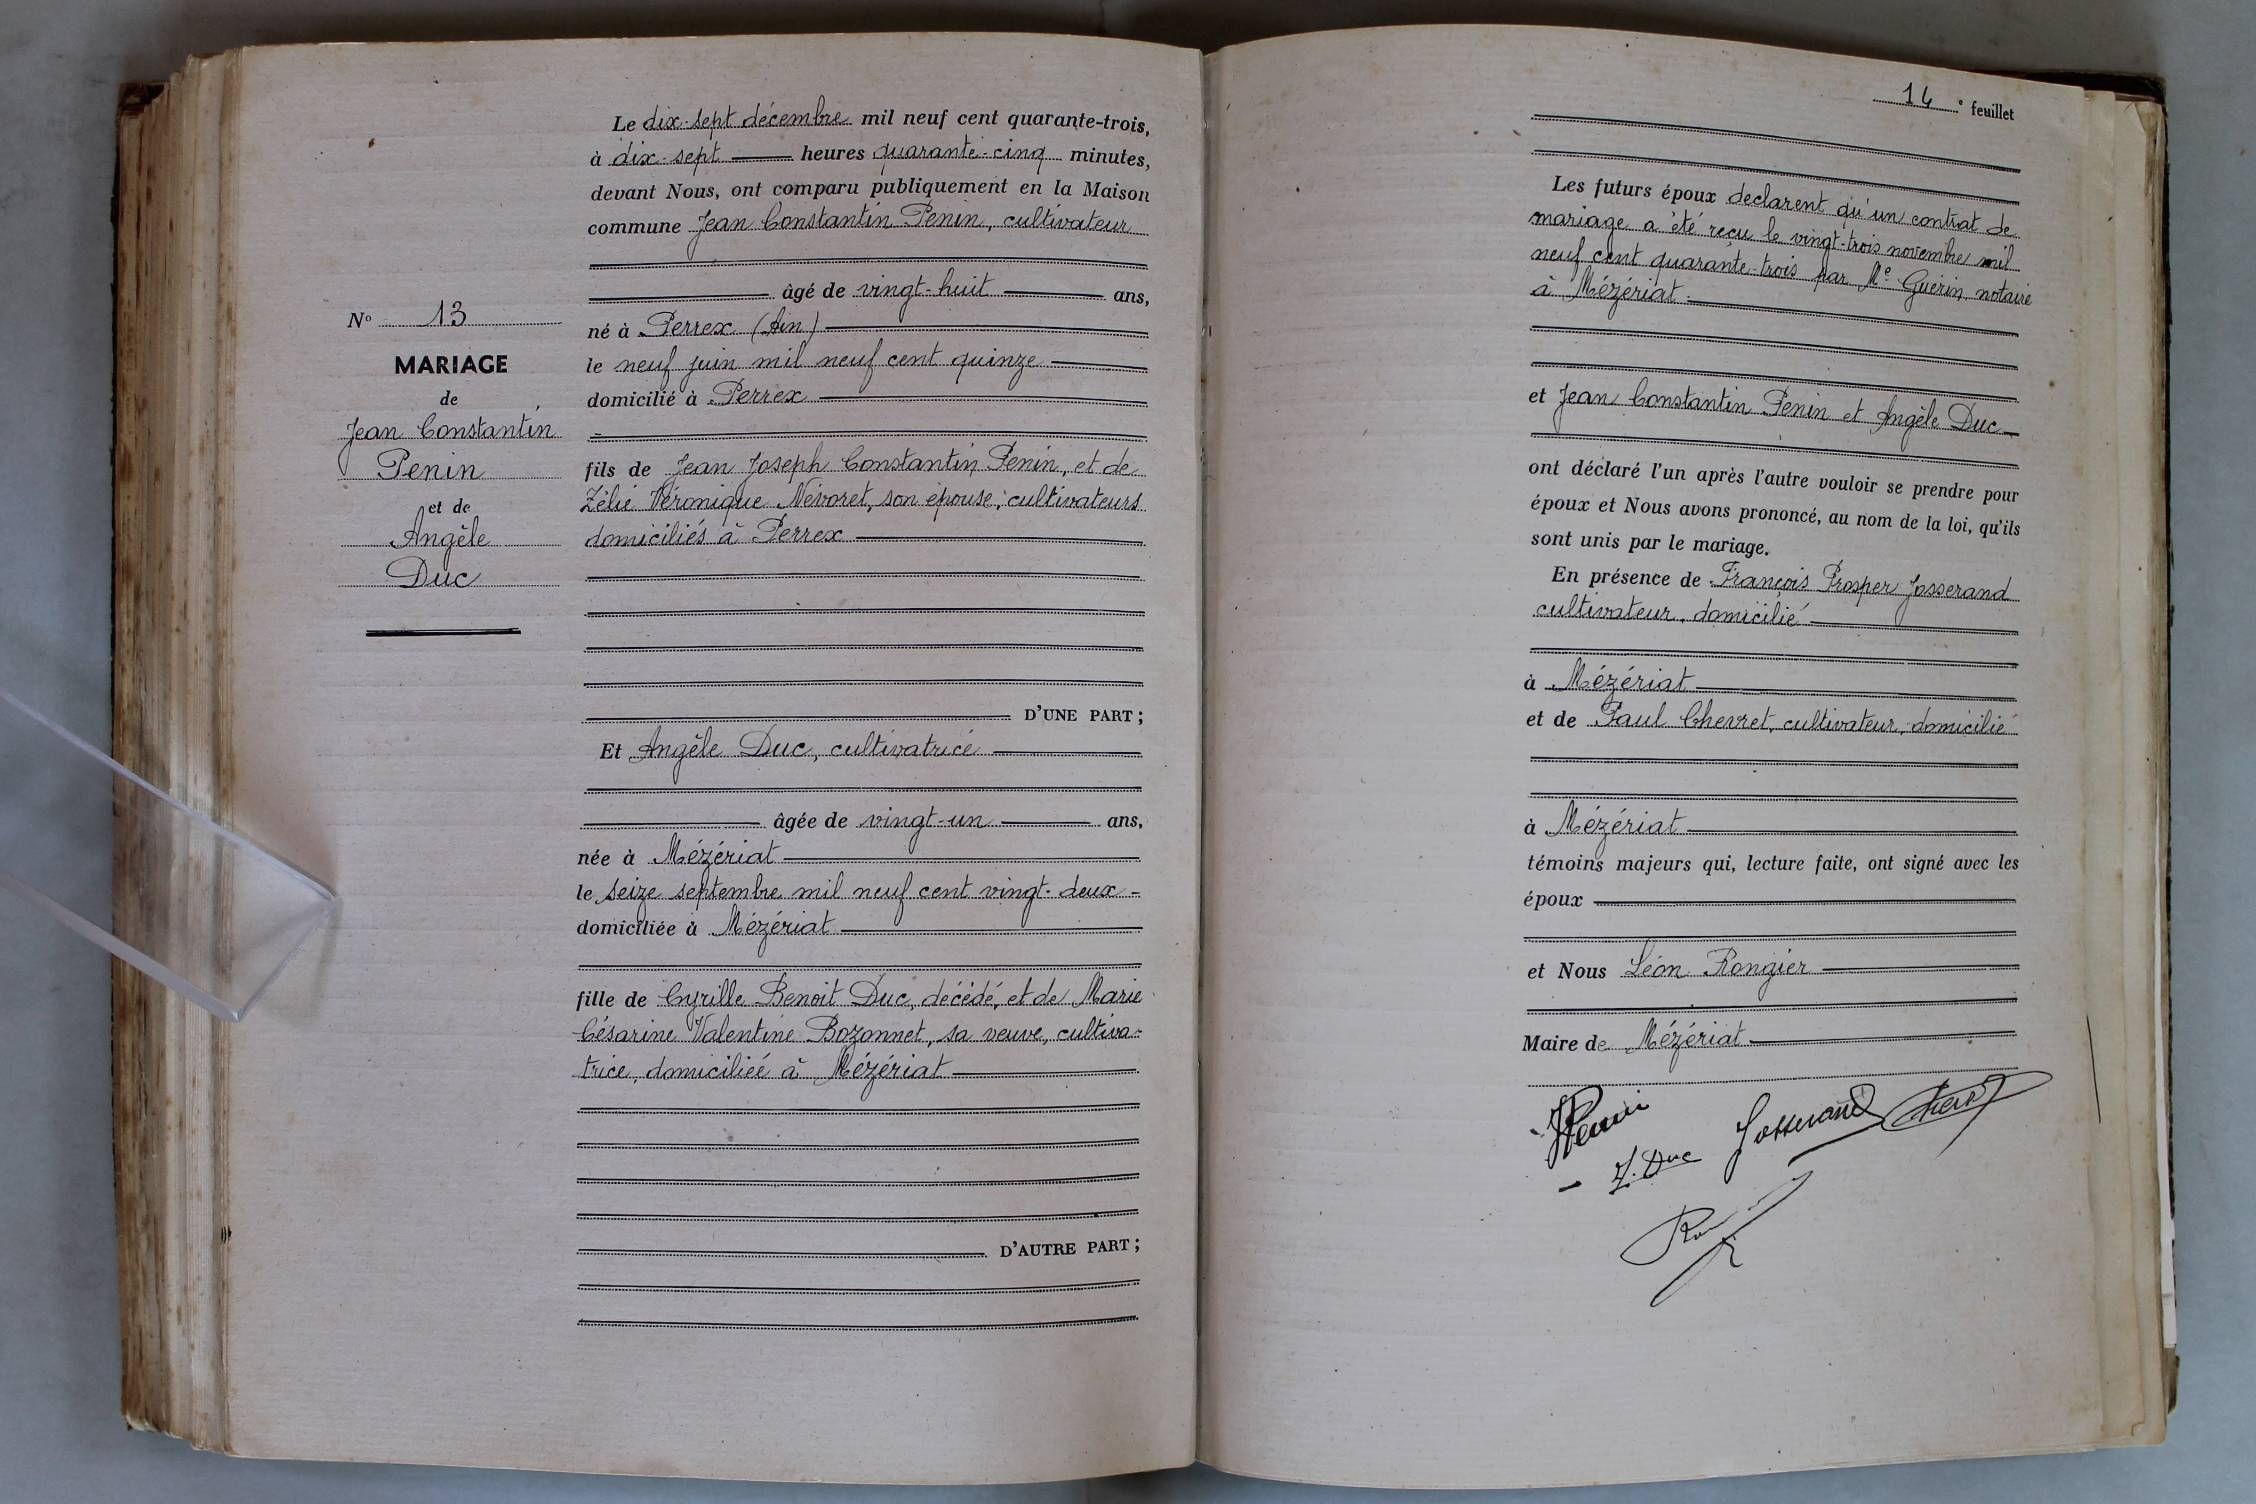 N° 13
MARIAGE
de
Jean Constantin
Penin
et de
Angèle
Duc
Le dix-sept décembre mil neuf cent quarante-trois,
à dix-sept heures quarante-cinq minutes,
devant Nous, ont comparu publiquement en la Maison
commune Jean Constantin Penin, cultivateur
âgé de vingt-huit ans,
né à Perrex (Ain)
le neuf juin mil neuf cent quinze
domicilié à Perrex
fils de Jean Joseph Constantin Penin, et de
Zélie Véronique Névoret, son épouse, cultivateurs
domiciliés à Perrex
D'UNE PART ;
Et Angèle Duc, cultivatrice
âgée de vingt-un ans,
née à Mézériat
le seize septembre mil neuf cent vingt-deux
domiciliée à Mézériat
fille de Cyrille Benoit Duc, décédé, et de Marie
Césarine Valentine Bozonnet, sa veuve, cultiva-
trice, domiciliée à Mézériat
D'AUTRE PART ;
14 e feuillet
Les futurs époux declarent qu'un contrat de
mariage a été reçu le vingt-trois novembre mil
neuf cent quarante-trois par Me Guérin, notaire
à Mézériat
et Jean Constantin Penin et Angèle Duc
ont déclaré l'un après l'autre vouloir se prendre pour
époux et Nous avons prononcé, au nom de la loi, qu'ils
sont unis par le mariage.
En présence de François Prosper Josserand
cultivateur, domicilié
à Mézériat
et de Paul Chevret, cultivateur, domicilié
à Mézériat
témoins majeurs qui, lecture faite, ont signé avec les
époux
et Nous Léon Rongier
Maire de Mézériat
Penin
Duc Josserand